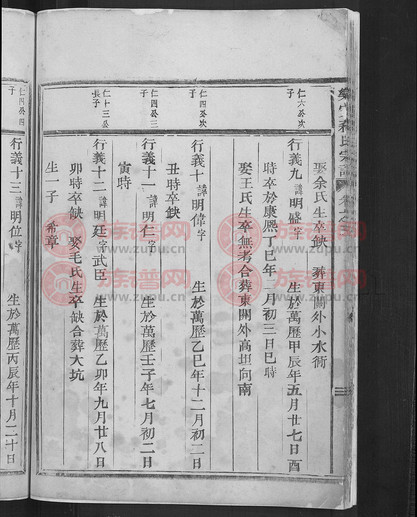 娶余氏生卒缺 葬東關外小水衖
仁六公次子
行義九 諱明盛字 生於萬歷甲辰年五月廿七日酉
時卒於康熙丁巳年二月初三日巳時
娶王氏生卒無考合葬東關外高坦向南
仁四公次子
行義十 諱明偉字 生於萬歷乙巳年十二月初二日
丑時卒缺
仁四公三子
行義十一 諱明仁字 生於萬歷壬子年七月初二日
寅時
仁十三公長子
行義十二 諱明廷字武臣 生於萬歷乙卯年九月廿八日
卯時卒缺 娶毛氏生卒缺合葬大坑
生一子 希章
仁四公四子
行義十三 諱明位字 生於萬歷丙辰年十月二十日
族谱网
www.zupu.cn